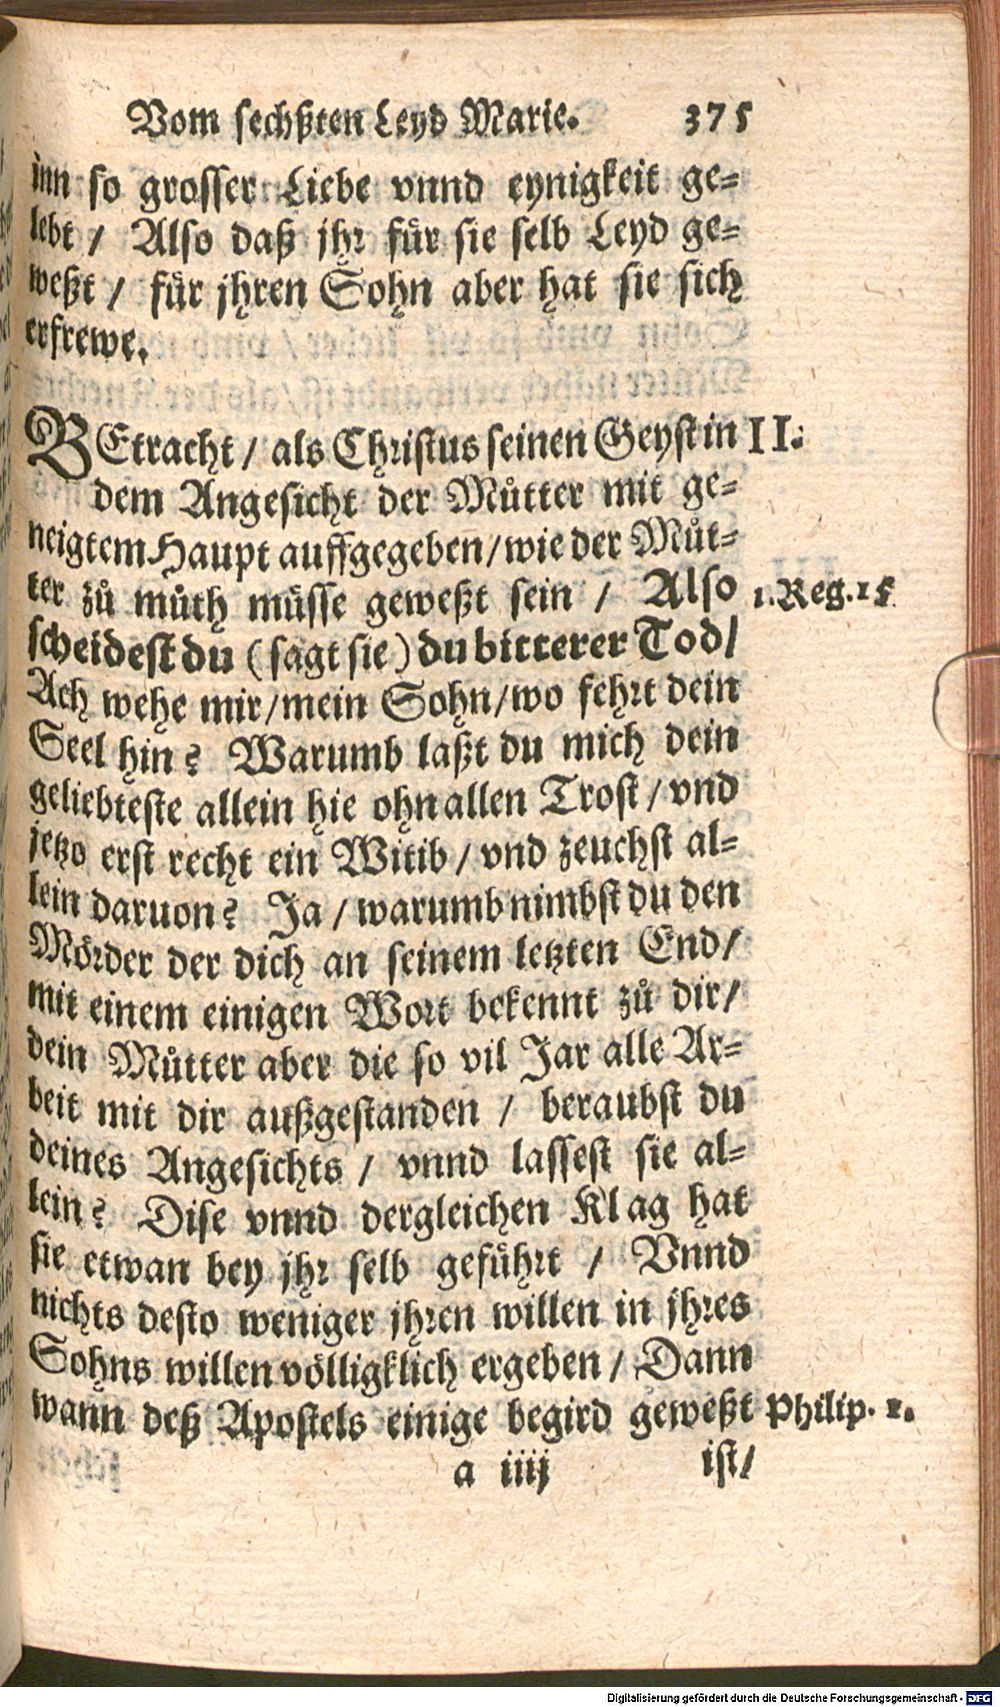 Vom sechßten Leyd Marie. 375
inn so grosser Liebe vnnd eynigkeit ge=
lebt / Also daß jhr für sie selb Leyd ge=
weßt / für jhren Sohn aber hat sie sich
erfrewe.
BEtracht / als Christus seinen Geyst in II.
dem Angesicht der Můtter mit ge=
neigtem Haupt auffgegeben / wie der Můt=
ter zů můth müsse geweßt sein / Also 1. Reg. 15
scheidest du (sagt sie) du bitterer Tod /
Ach wehe mir / mein Sohn / wo fehrt dein
Seel hin? Warumb laßt du mich dein
geliebteste allein hie ohn allen Trost / vnd
jetzo erst recht ein Witib / vnd zeuchst al=
lein daruon? Ja / warumb nimbst du den
Mörder der dich an seinem letzten End /
mit einem einigen Wort bekennt zů dir /
dein Můtter aber die so vil Jar alle Ar=
beit mit dir außgestanden / beraubst du
deines Angesichts / vnnd lassest sie al=
lein? Dise vnnd dergleichen Klag hat
sie etwan bey jhr selb geführt / Vnnd
nichts desto weniger jhren willen in jhres
Sohns willen völligklich ergeben / Dann
wann deß Apostels einige begird geweßt Philip. 1.
a iiij ist /
Digitalisierung gefördert durch die Deutsche Forschungsgemeinschaft - DFG